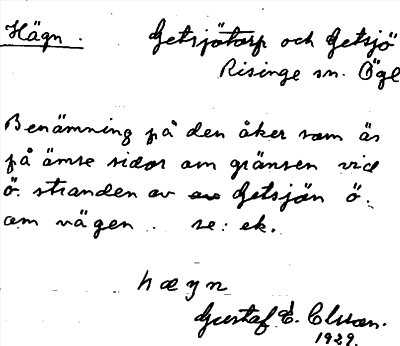 Hägn. Getsjötorp och Getsjö
Risinge sn. Ögl
Benämning på den åker som äs
på ömse sidor om gränsen vid
ö. stranden av Getsjön ö.
om vägen. se: ek.
hægn
Gustaf E. Olsson.
1929.